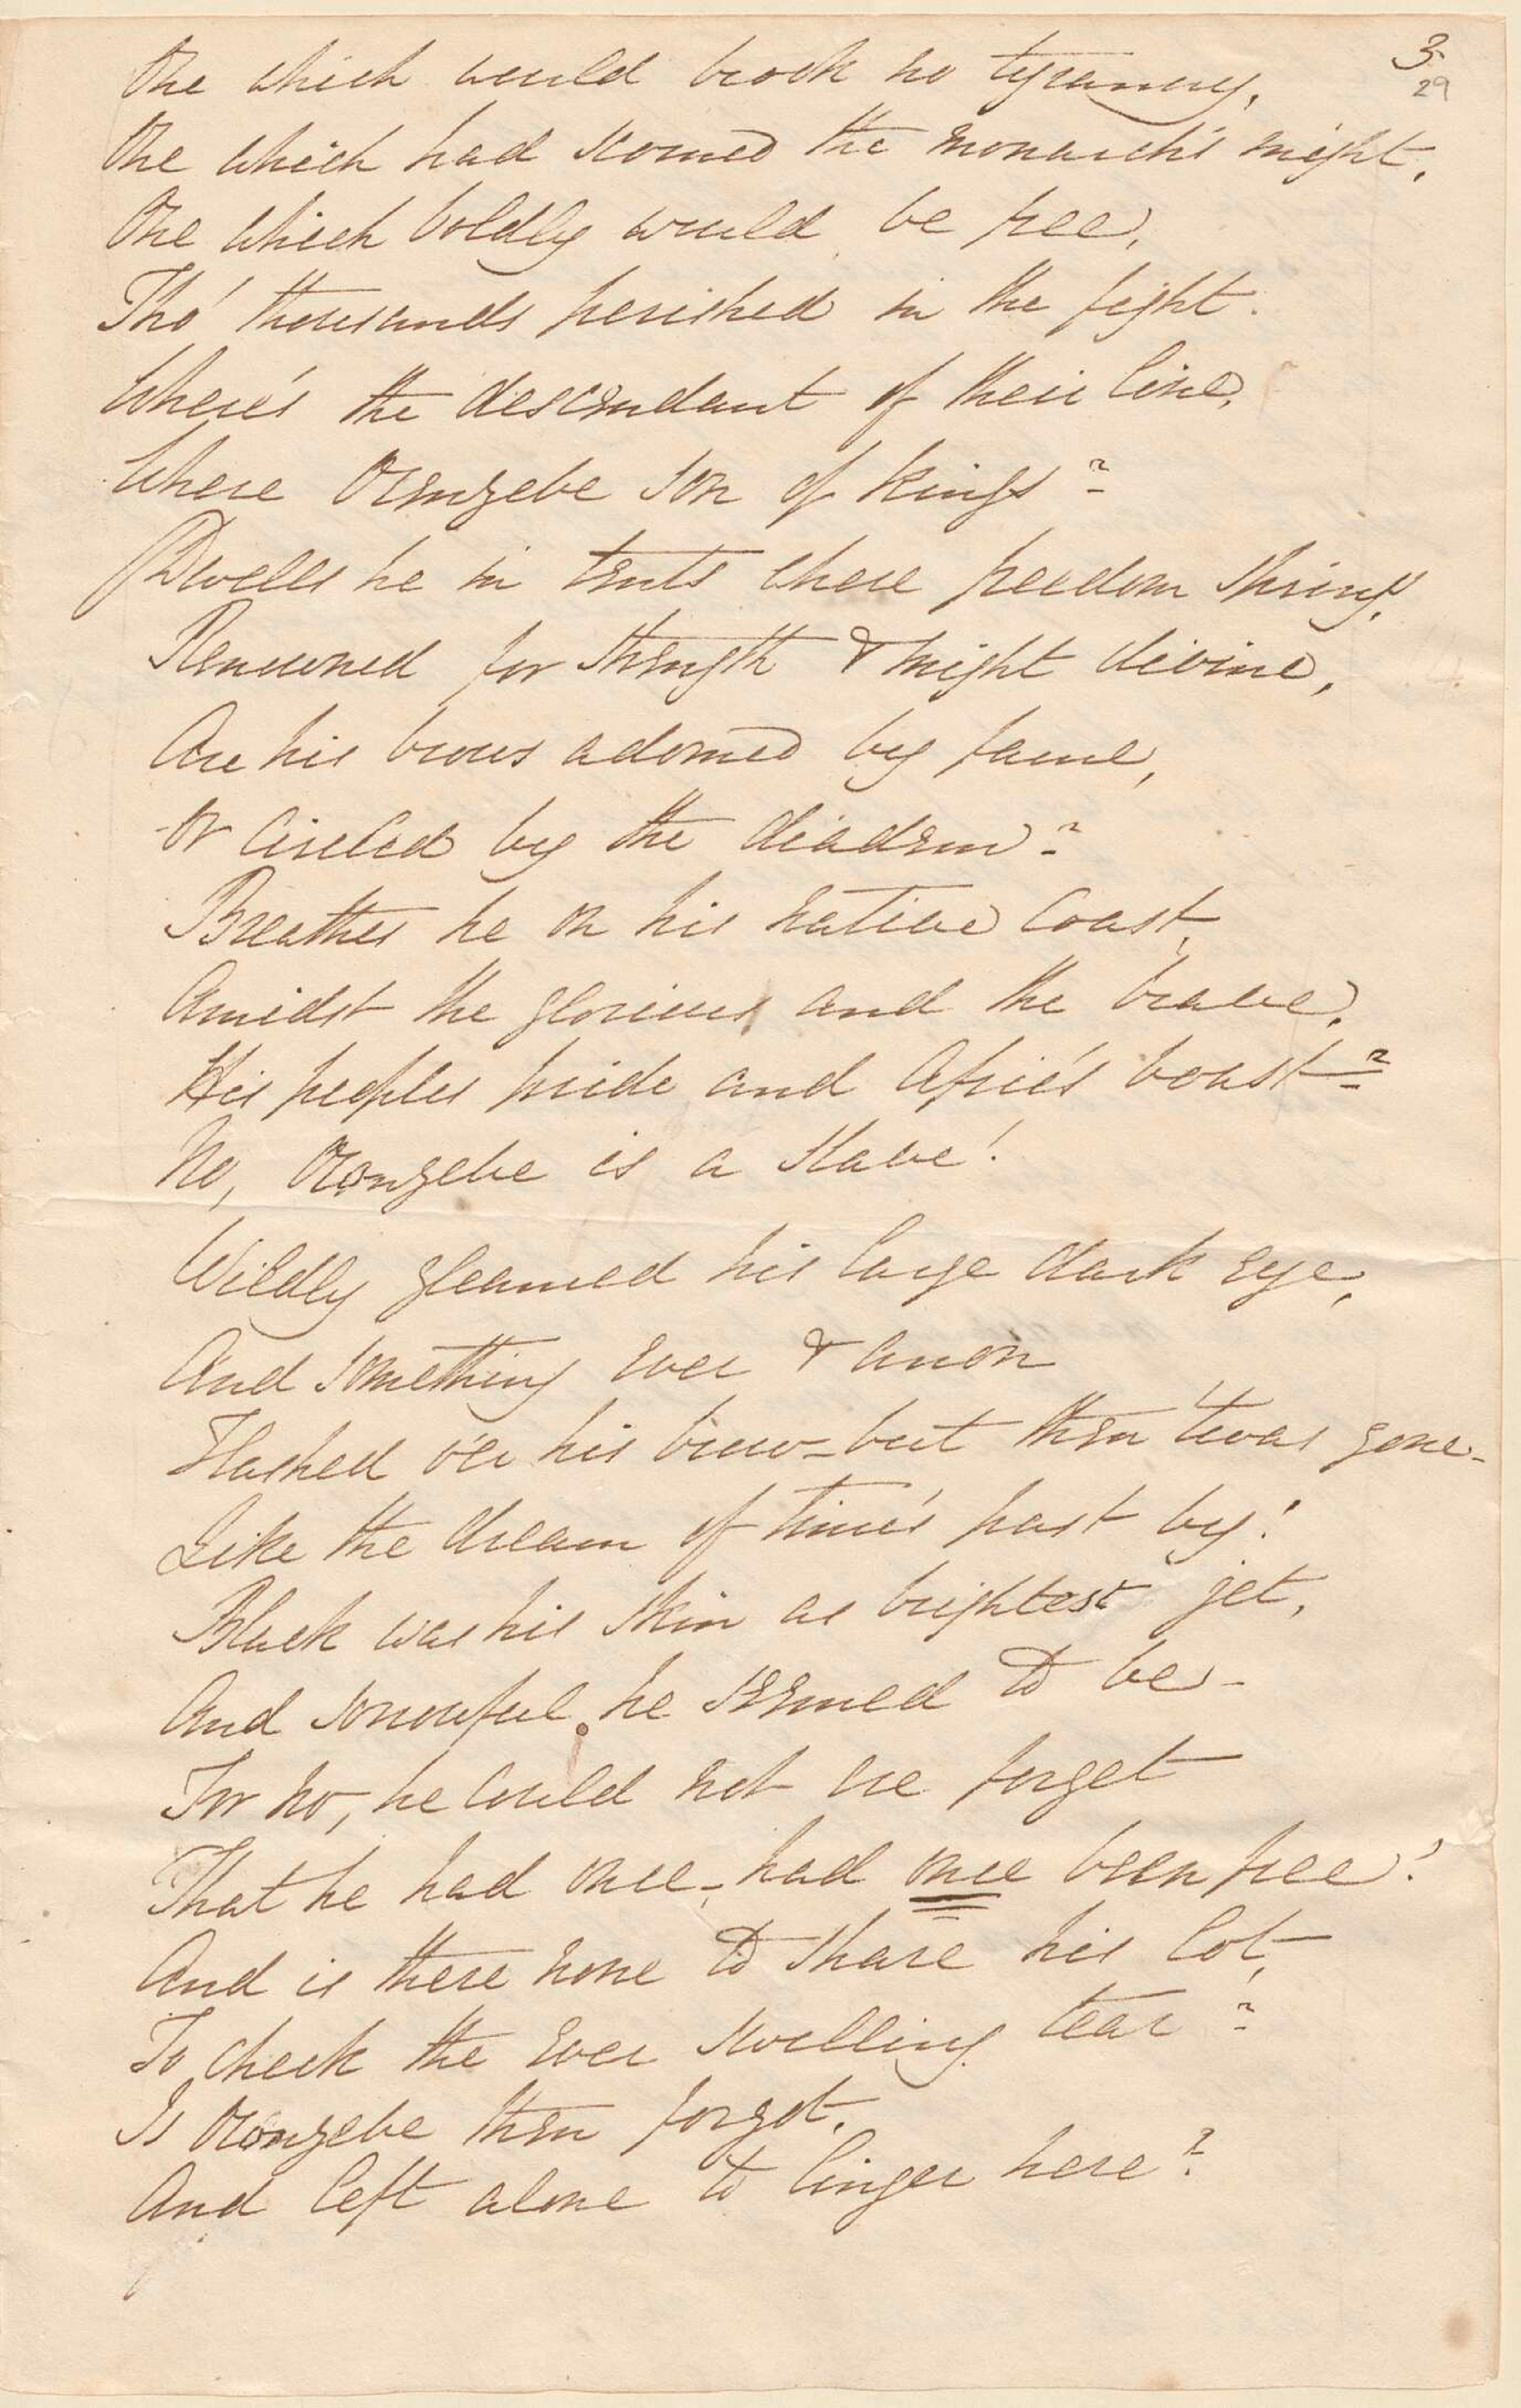 3.
29
One which would brook no tyranny,
One which had scorned the monarch's might,
One which boldly would be free,
Tho' thousands perished in the fight.
Where's the descendant of their line,
Where Orengzebe son of kings?
Dwells he in tents where freedom springs,
Renowned for strength & might divine,
Are his brows adorned by fame,
Or circled by the diadem?
Breathes he on his native coast,
Amidst the glorious and the brave,
His peoples pride and Afric's boast?
No, Orongzebe is a slave!
Wildly gleamed his large dark eye,
And something ever & anon
Flashed o'er his brow – but then 'twas gone –
Like the dream of time's past by!
Black was his skin as brightest jet,
And sorrowful he seemed to be –
For no, he could not ere forget
That he had once – had once been free!
And is there none to share his lot,
To check the ever swelling tear?
Is Orongzebe then forgot,
And left alone to linger here?